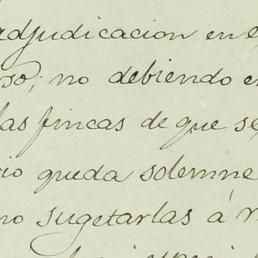 adjudicacion en e
so; no debiendo e
las fincas de que se
io queda solemne
no sugetarlas á